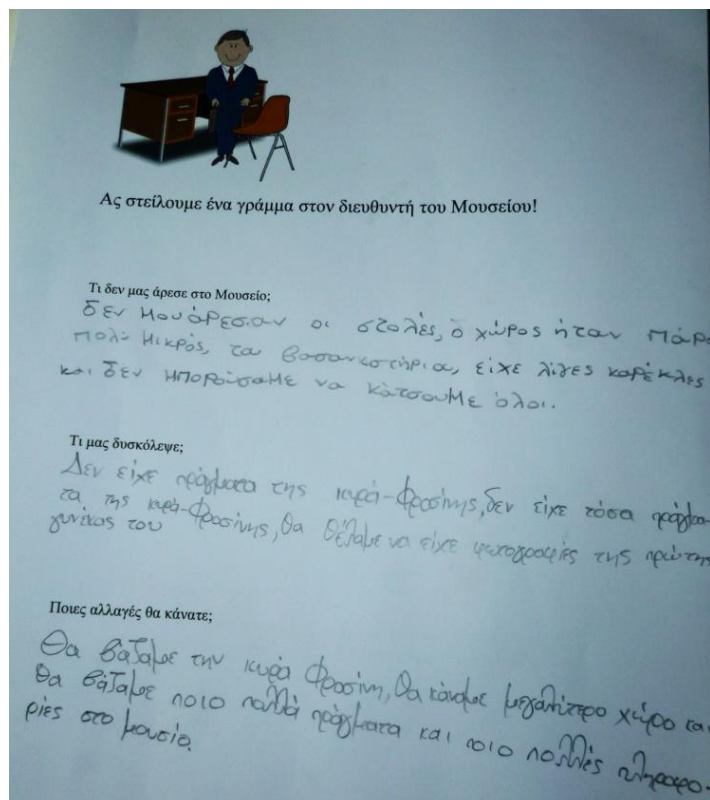 Ας στείλουμε ένα γράμμα στον διευθυντή του Μουσείου!
Τι δεν μας άρεσε στο Μουσείο;
δεν μου άρεσαν οι στολές, ο χώρος ήταν πάρα
πολύ μικρός, τα βασανιστήρια, είχε λίγες καρέκλες
και δεν μπορούσαμε να κάτσουμε όλοι.
Τι μας δυσκόλεψε;
Δεν είχε πράγματα της κυρά-Φροσίνης, δεν είχε τόσα πράγμα-
τα της κυρά-Φροσίνης, θα θέλαμε να είχε φωτογραφίες της πρώτης
γυνέκας του
Ποιες αλλαγές θα κάνατε;
Θα βάζαμε την κυρά Φροσίνη, θα κάναμε μεγαλίτερο χώρο και
θα βάζαμε ποιο πολλά πράγματα και ποιο πολλές πληροφο-
ρίες στο μουσίο.